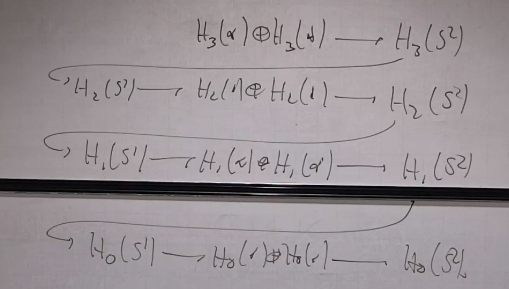 H₃(α)⊕H₃(α) → H₃(S²)
H₂(S¹) → H₂(α)⊕H₂(α) → H₂(S²)
H₁(S¹) → H₁(α)⊕H₁(α) → H₁(S²)
H₀(S¹) → H₀(α)⊕H₀(α) → H₀(S²)